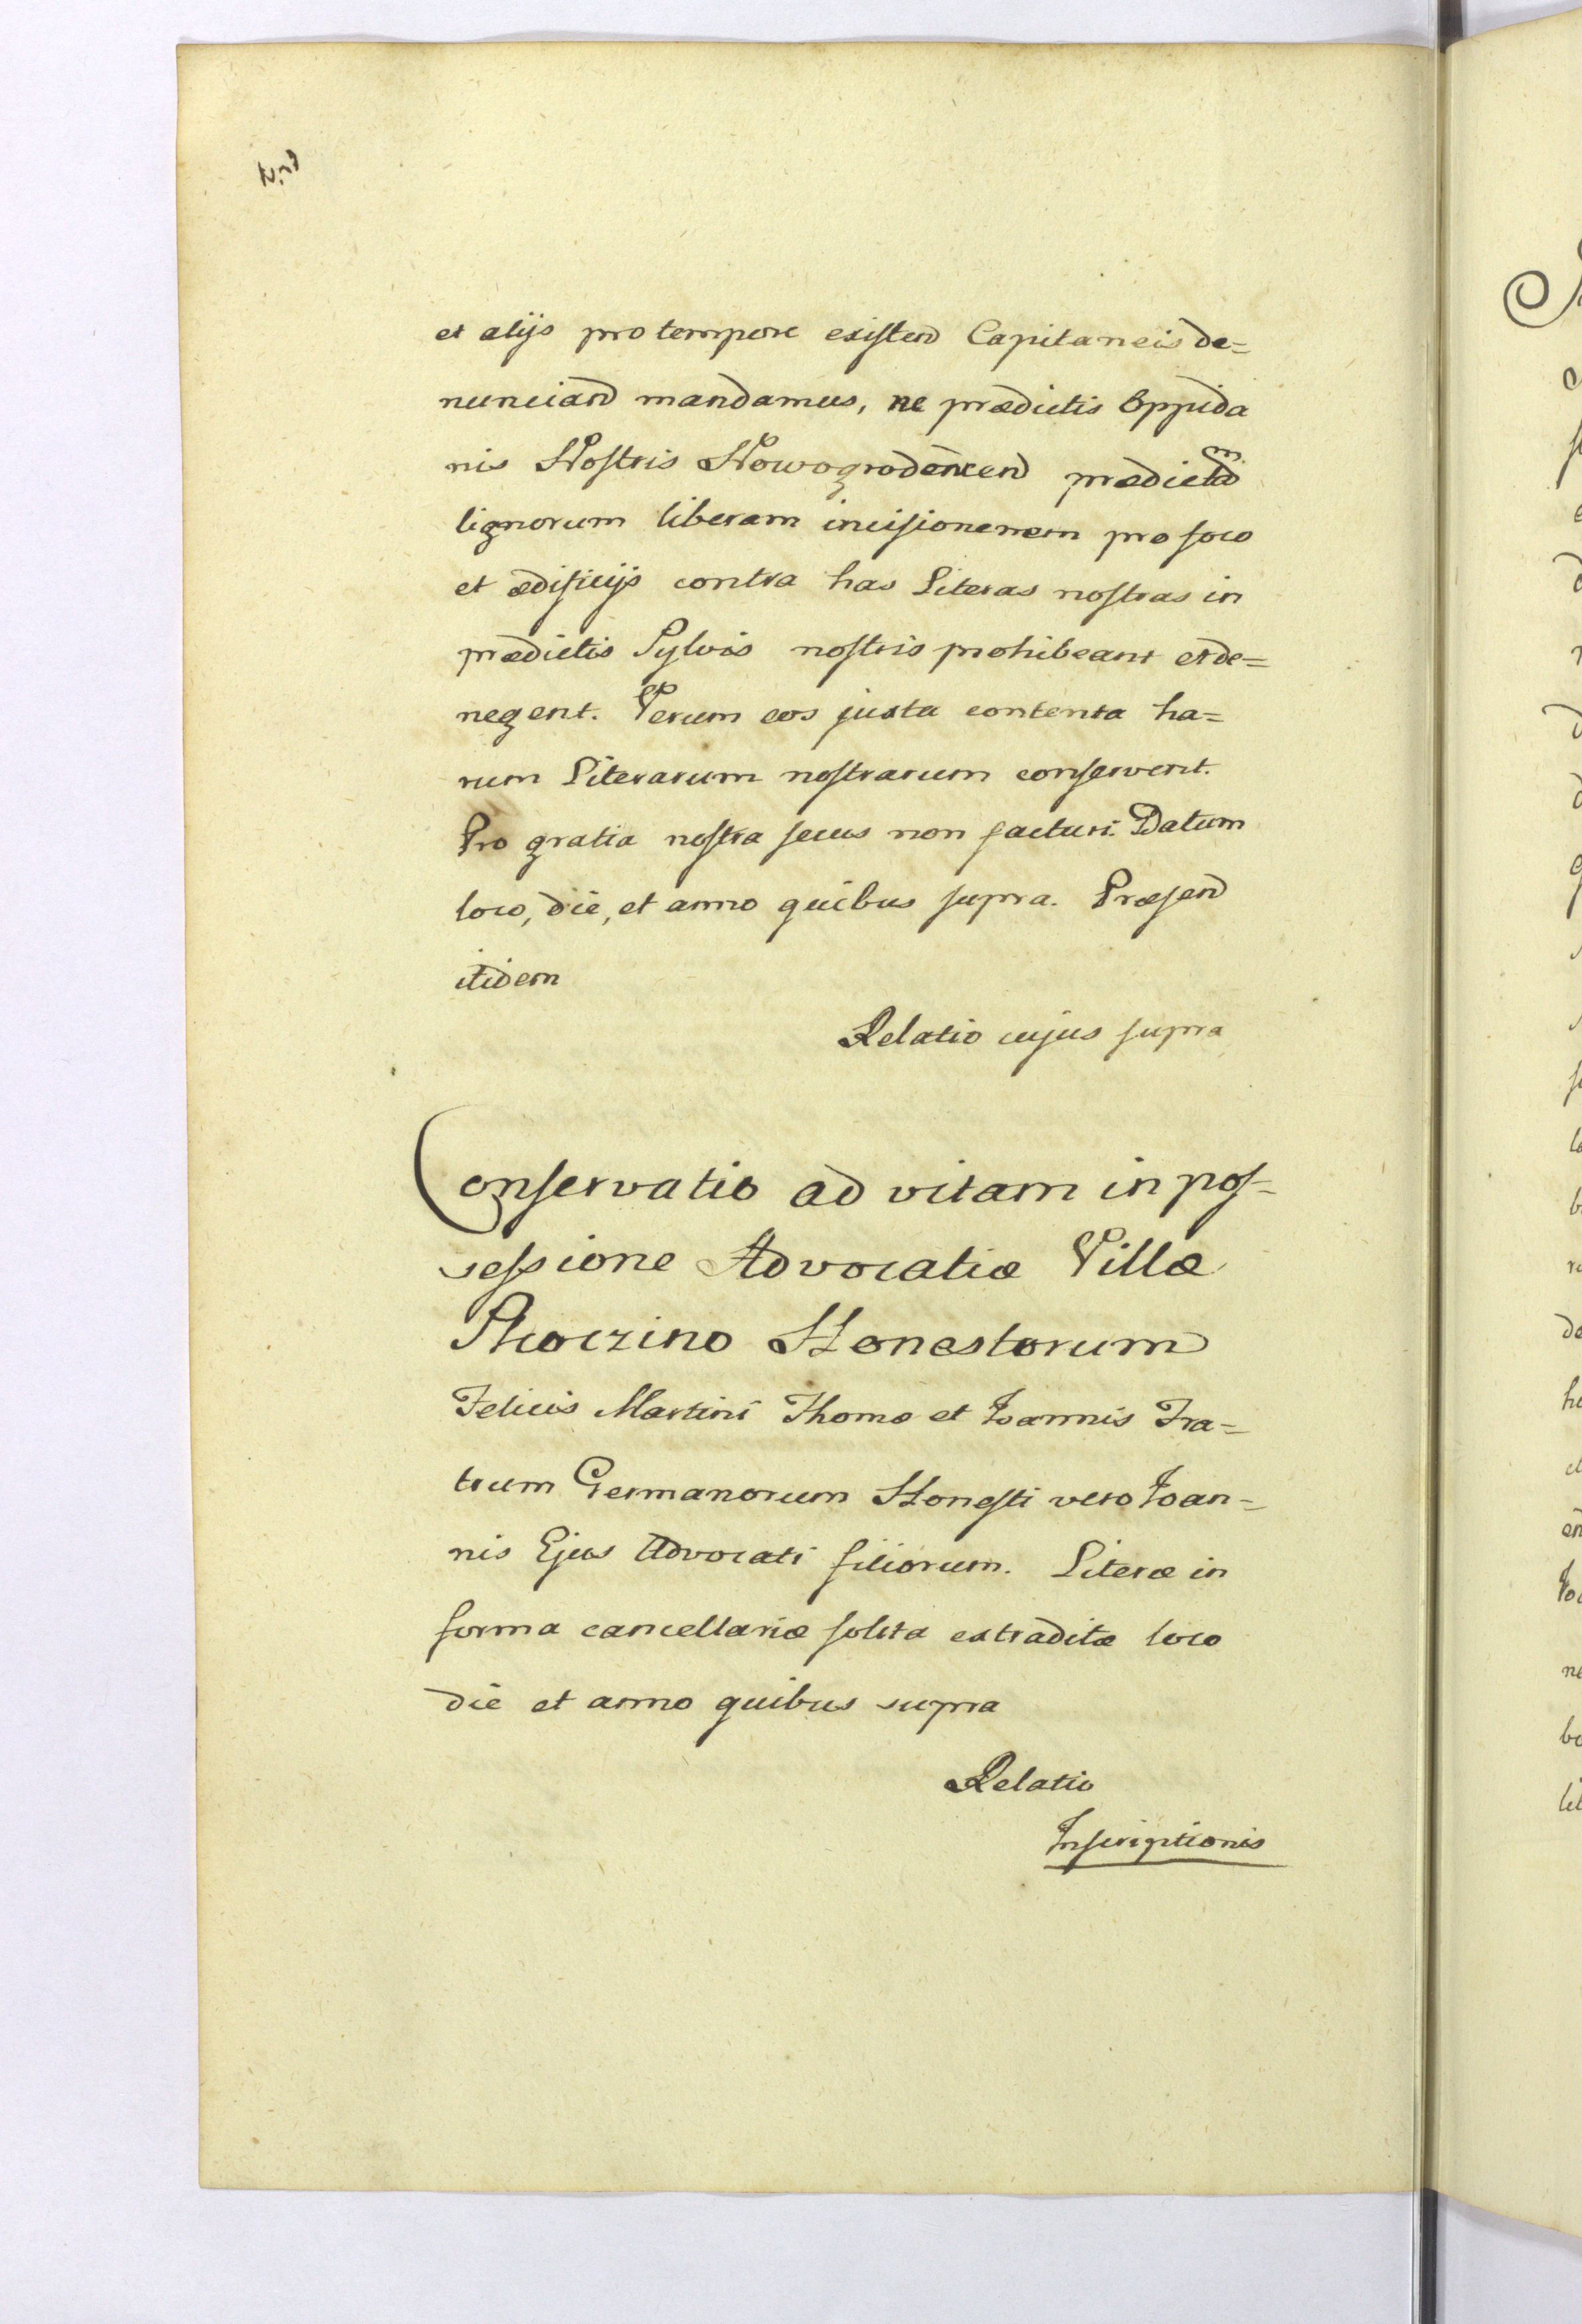 et alijs pro tempore existen Capitaneis de=
nuncian mandamus, ne prædictis Oppida
nis Nostris Nowogrodencen prædictam
lignorum liberam incisionemem pro foco
et ædificijs contra has Literas nostras in
prædictis Sylvis nostris prohibeant et de=
negent. Verum eos juxta contenta ha=
rum Literarum nostrarum conservent.
Pro gratia nostra secus non facturi. Datum
loco, die, et anno quibus supra. Præsen
itidem
Relatio cujus supra
Conservatio ad vitam in pos=
sessione Advocatiæ Villæ
Honestorum
Felicis Martini Thomæ et Ioannis Fra=
trum Germanorum Honesti vero Ioan=
nis Ejus Advocati filiorum. Literæ in
forma cancellariæ solita extraditæ loco
die et anno quibus supra
Relatio
Inscriptionis